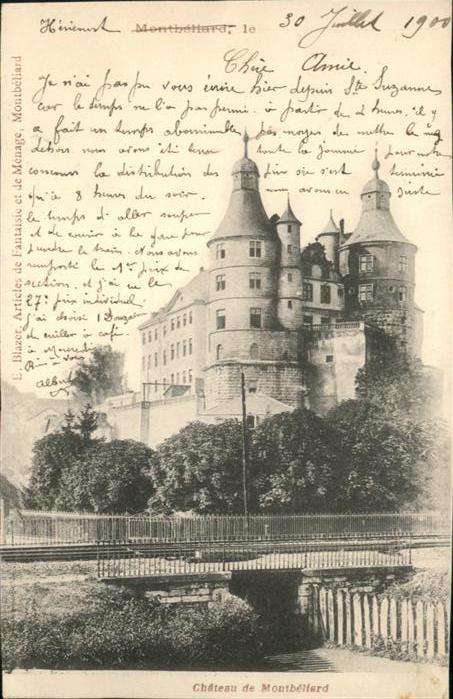 Héricourt Montbéliard, le 30 Juillet 1900
Chère Amie
Je n'ai pas pu vous écrire hier depuis Ste Suzanne
car le temps ne l'a pas permi. à partir de 2 heures, il y
a fait un temps abominable, pas moyen de mettre le nez
dehors nous avons été tenu toute la journée pour notre
concours la distribution des prix s'est terminée
qu'à 8 heures du soir. nous avons eu juste
le temps d'aller souper
et de courir à la gare pour
prendre le train. Nous avons
remporté le 1er prix de
section, et j'ai eu le
27e prix individuel.
J'ai choisi 1 Douzaine
de cuiller à café
à
Bien à vous
Albert
L. Blazer, Articles de Fantaisie et de Ménage, Montbéliard
Château de Montbéliard